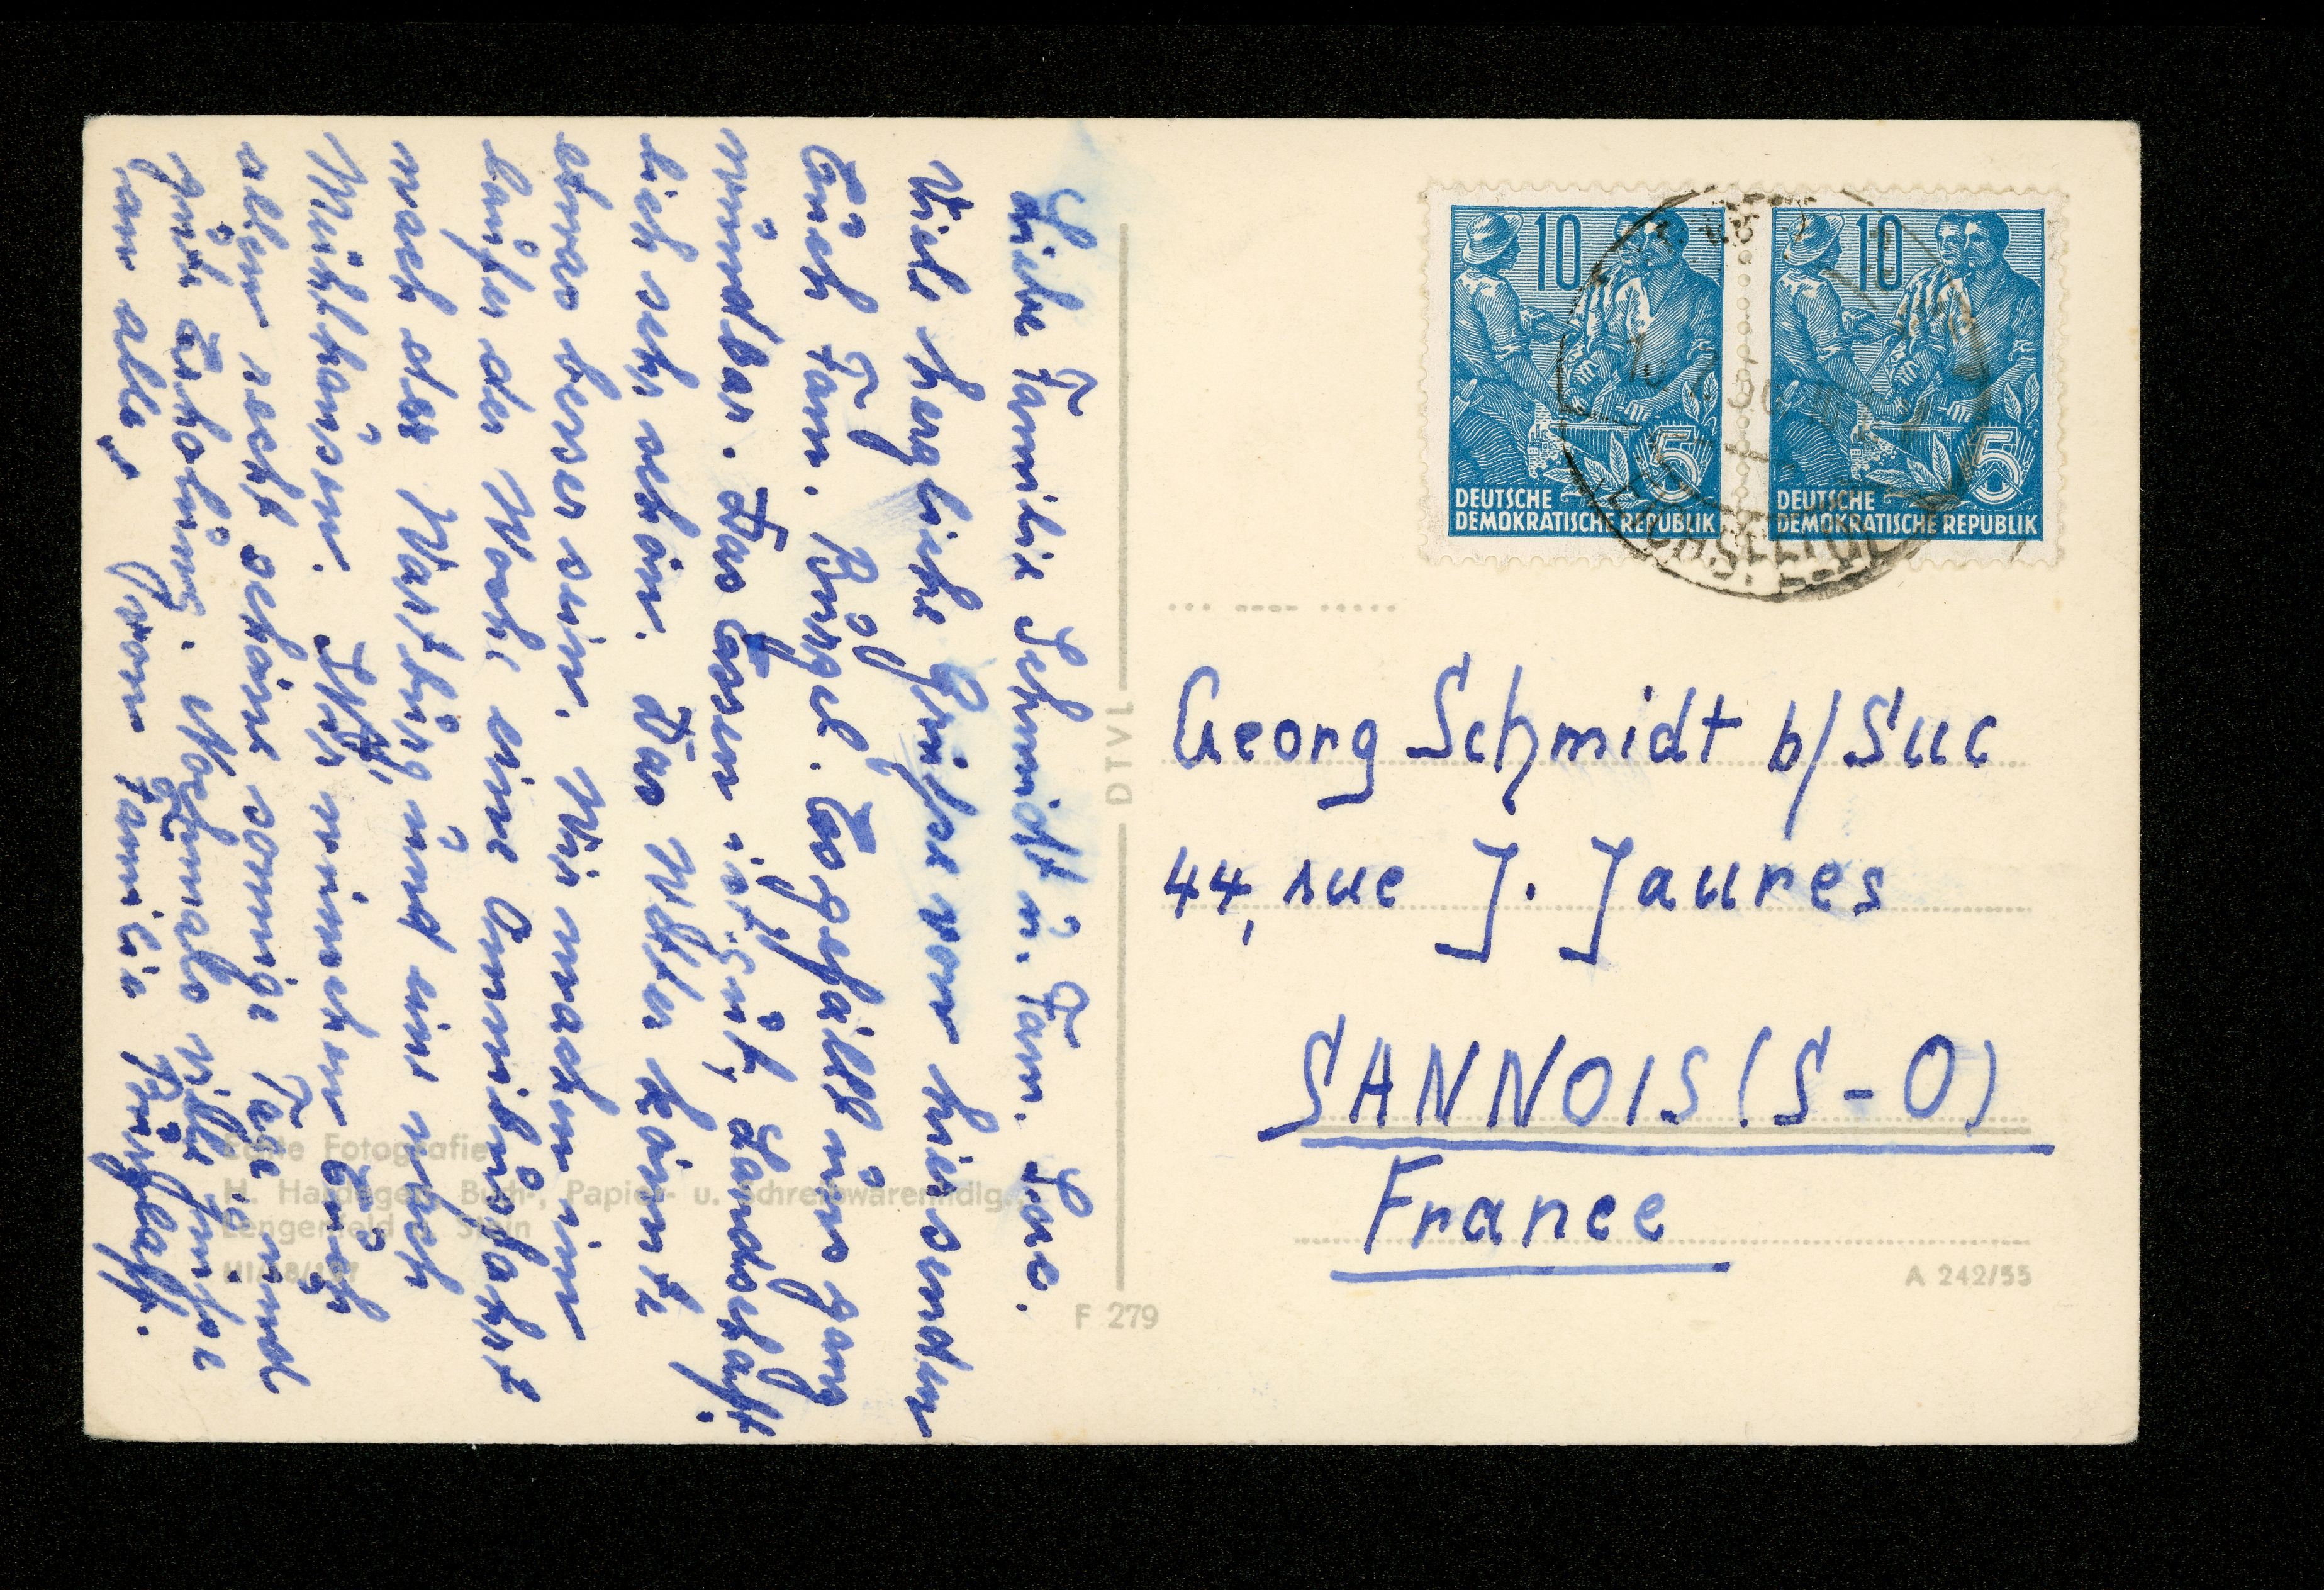 Liebe Familie Schmidt u. Fam.
Viele herzliche Grüße von hier senden
Euch Fam. Es gefällt uns ganz
wunderbar. Das Essen ist gut, Landschaft-
lich sehr schön. Das Wetter könnte
etwas besser sein. Wir machen im
Laufe der Woche eine Omnibusfahrt
nach der Wartburg und eine nach
Mühlhausen. Wir wünschen Euch
allen recht schöne sonnige Tage und
gute Erholung. Nochmals viele Grüße
an alle, von Familie
10
DEUTSCHE
DEMOKRATISCHE REPUBLIK
5
10
DEUTSCHE
DEMOKRATISCHE REPUBLIK
5
Georg Schmidt b/Suc
44, rue J. Jaures
SANNOIS (S-O)
France
DTVL
Echte Fotografie
H. Hardegen, Buch-, Papier- u. Schreibwarenhdlg.,
Lengenfeld u. Stein
F 279
A 242/55